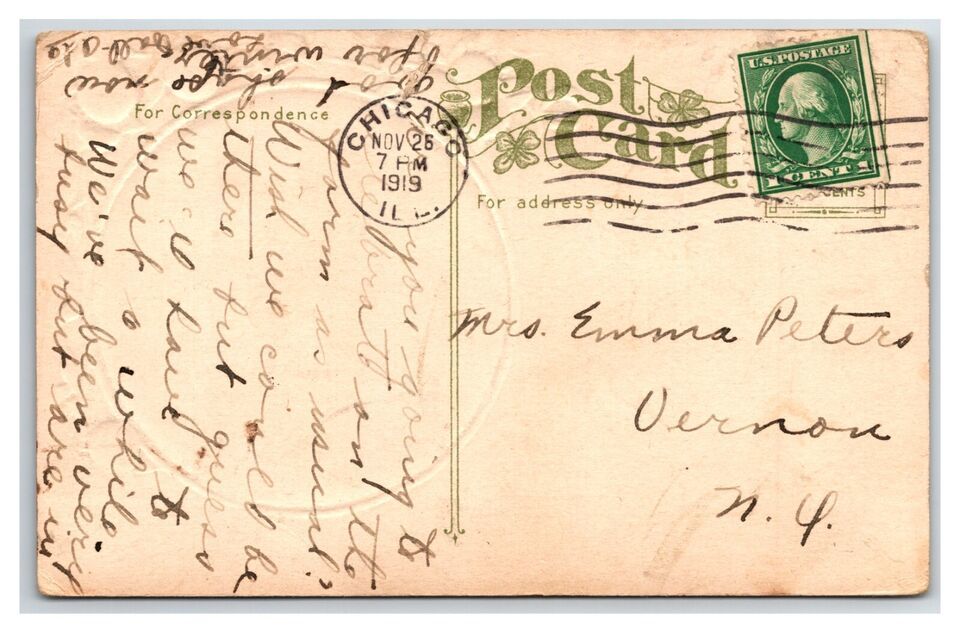 Post
Card
For Correspondence
For address only
U.S. POSTAGE
CENT
CENTS
CHICAGO
NOV 26
7 PM
1919
ILL.
Mrs. Emma Peters
Vernon
N. Y.
you going to
celebrate on the
farm as usual?
Wish we could be
there but guess
we'll have to
wait a while
We've been very
busy but are in
shape now
for winter
Love to all